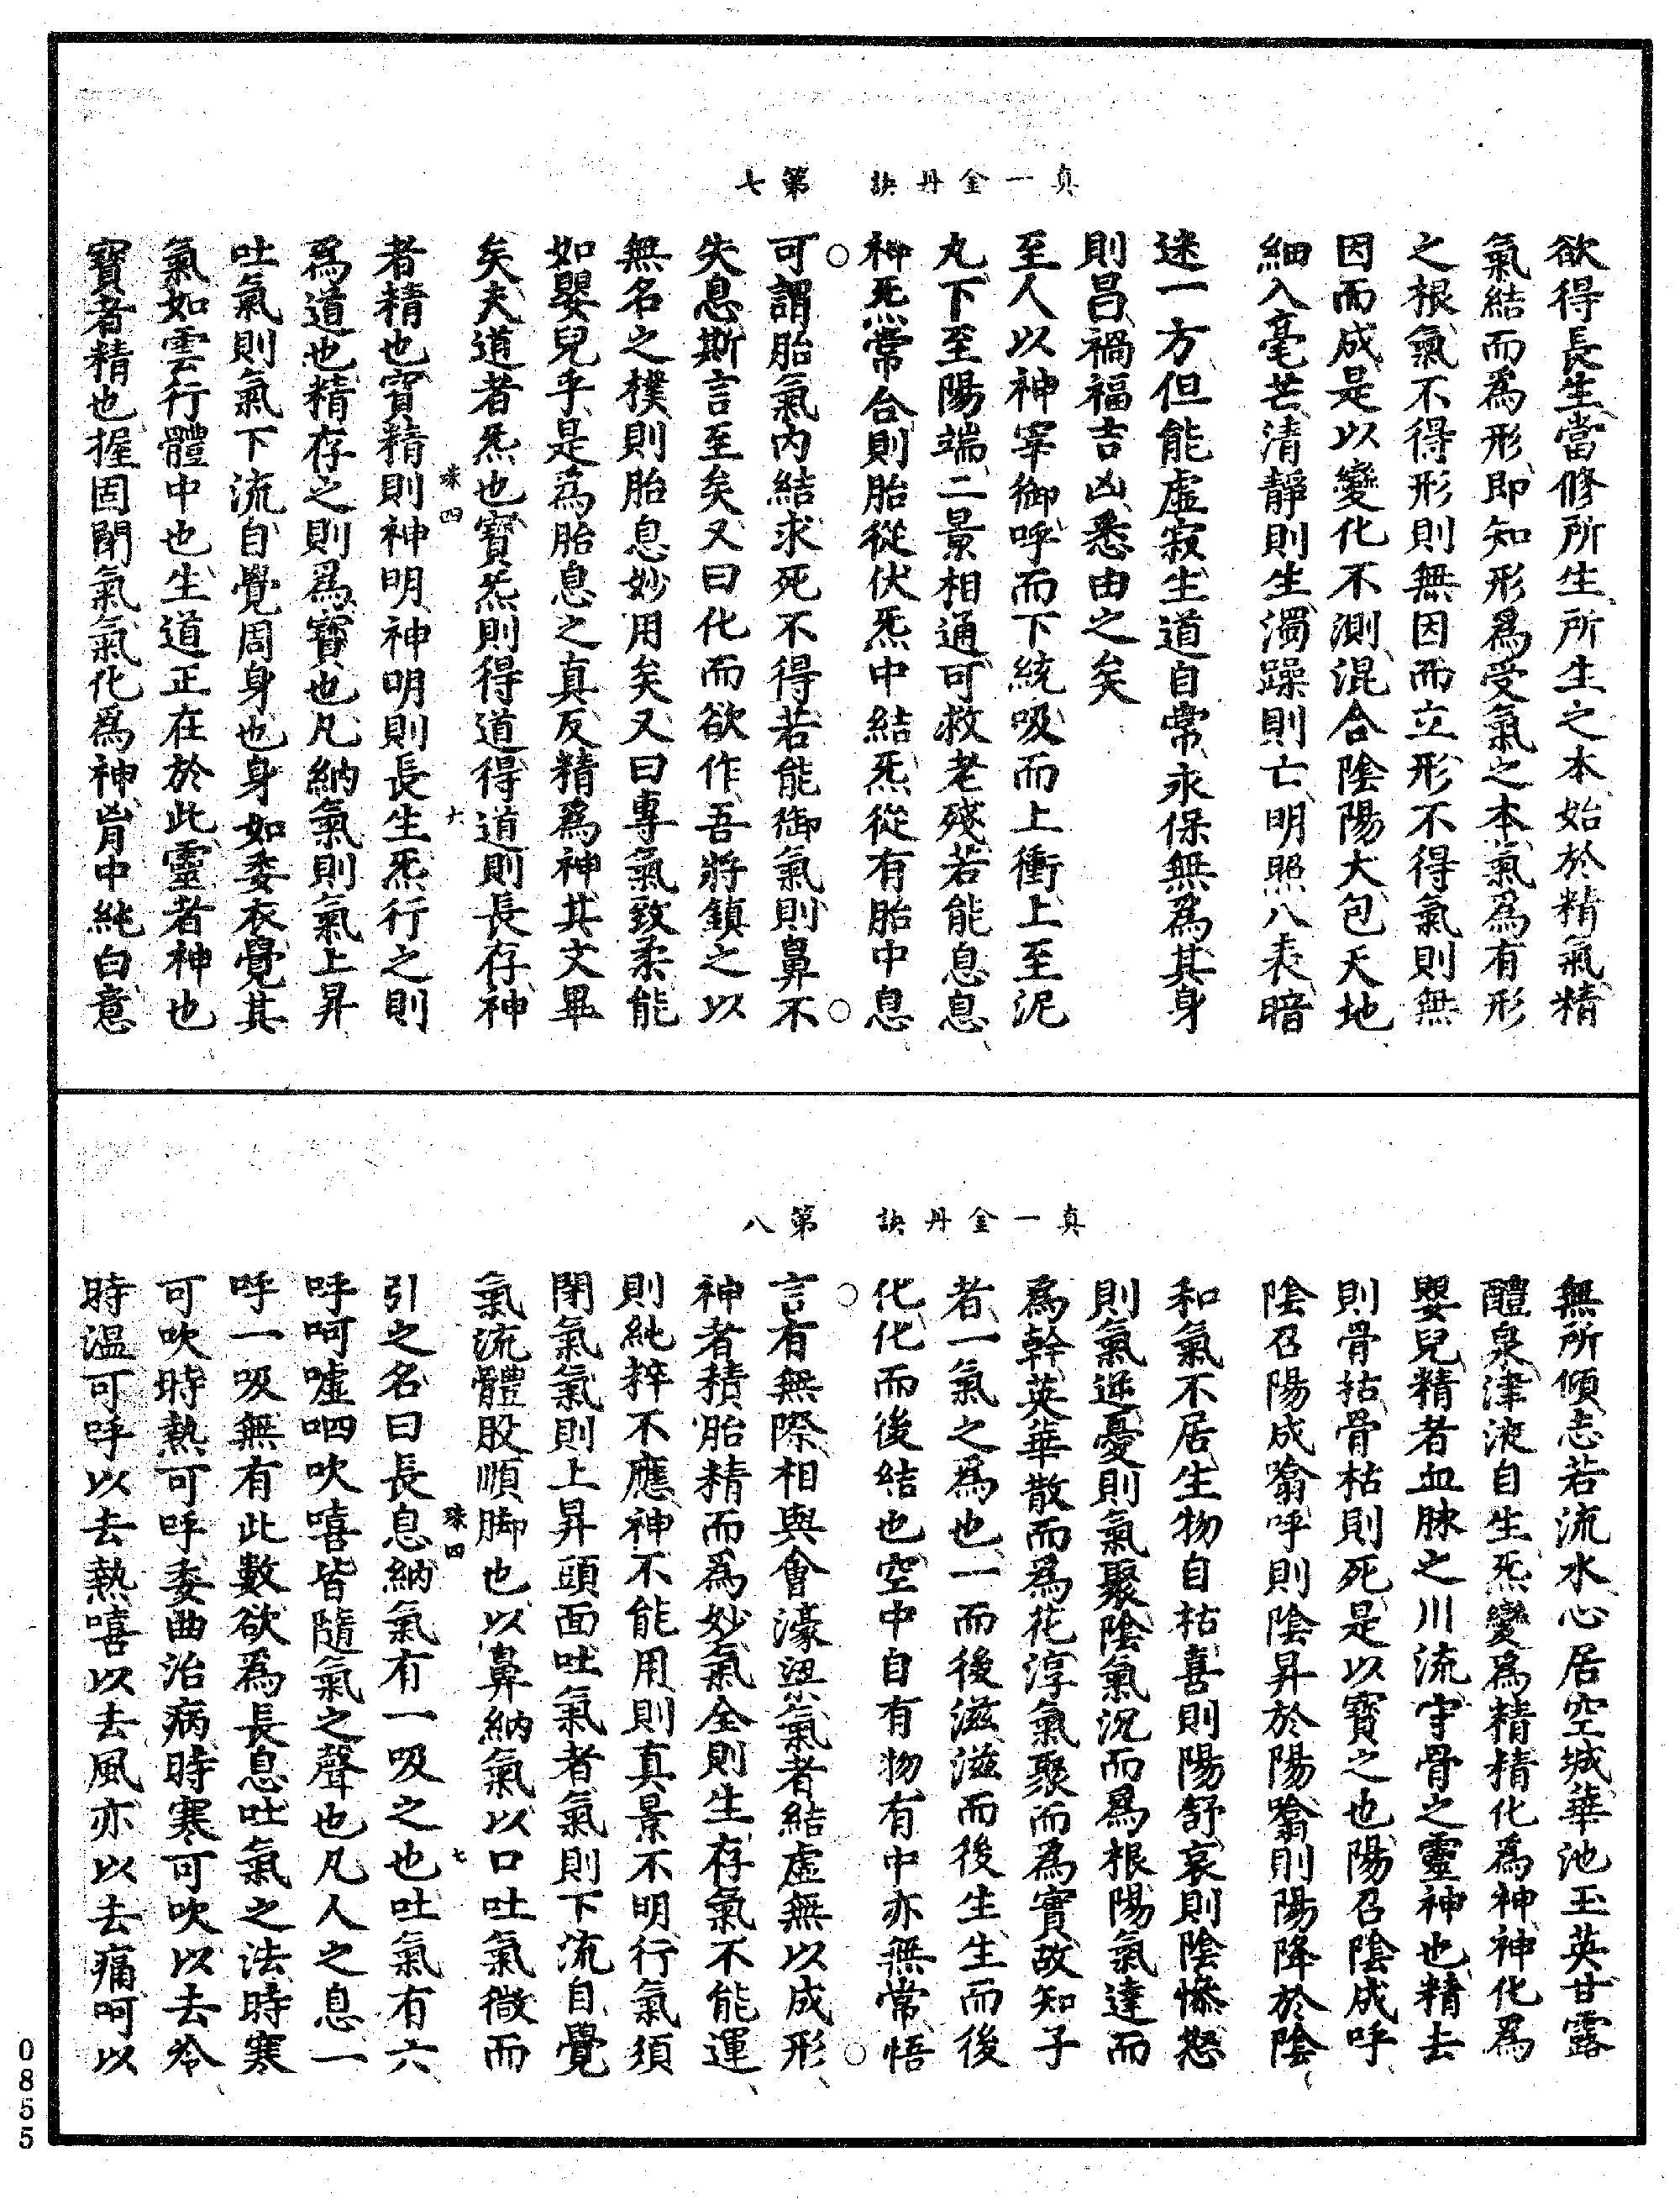 真一金丹訣　第七
欲得長生當修所生所生之本始於精氣精
氣結而為形即知形為受氣之本氣為有形
之根氣不得形則無因而立形不得氣則無
因而成是以變化不測混合陰陽大包天地
細入毫芒清靜則生濁躁則亡明照八表暗
迷一方但能虛寂生道自常永保無為其身
則昌禍福吉凶悉由之矣
至人以神宰御呼而下統吸而上衝上至泥
丸下至陽端二景相通可救老殘若能息息
神炁常合則胎從伏炁中結炁從有胎中息
可謂胎氣內結求死不得若能御氣則鼻不
失息斯言至矣又曰化而欲作吾將鎮之以
無名之樸則胎息妙用矣又曰專氣致柔能
如嬰兒乎是為胎息之真反精為神其文畢
矣夫道者炁也寶炁則得道得道則長存神
珠四　六
者精也寶精則神明神明則長生炁行之則
為道也精存之則為寶也凡納氣則氣上昇
吐氣則氣下流自覺周身也身如委衣覺其
氣如雲行體中也生道正在於此靈者神也
寶者精也握固閉氣氣化為神胷中純白意
真一金丹訣　第八
無所傾志若流水心居空城華池玉英甘露
醴泉津液自生炁變為精精化為神神化為
嬰兒精者血脉之川流守骨之靈神也精去
則骨枯骨枯則死是以寶之也陽召陰成呼
陰召陽成噏呼則陰昇於陽噏則陽降於陰
和氣不居生物自枯喜則陽舒哀則陰慘怒
則氣逆憂則氣聚陰氣沉而為根陽氣達而
為幹英華散而為花淳氣聚而為實故知子
者一氣之為也一而後滋滋而後生生而後
化化而後結也空中自有物有中亦無常悟
言有無際相與會濠梁氣者結虛無以成形
神者積胎精而為妙氣全則生存氣不能運
則純粹不應神不能用則真景不明行氣須
閉氣氣則上昇頭面吐氣者氣則下流自覺
氣流體股順脚也以鼻納氣以口吐氣微而
珠四　七
引之名曰長息納氣有一吸之也吐氣有六
呼呵噓呬吹嘻皆隨氣之聲也凡人之息一
呼一吸無有此數欲為長息吐氣之法時寒
可吹時熱可呼委曲治病時寒可吹以去冷
時溫可呼以去熱嘻以去風亦以去痛呵以
0855